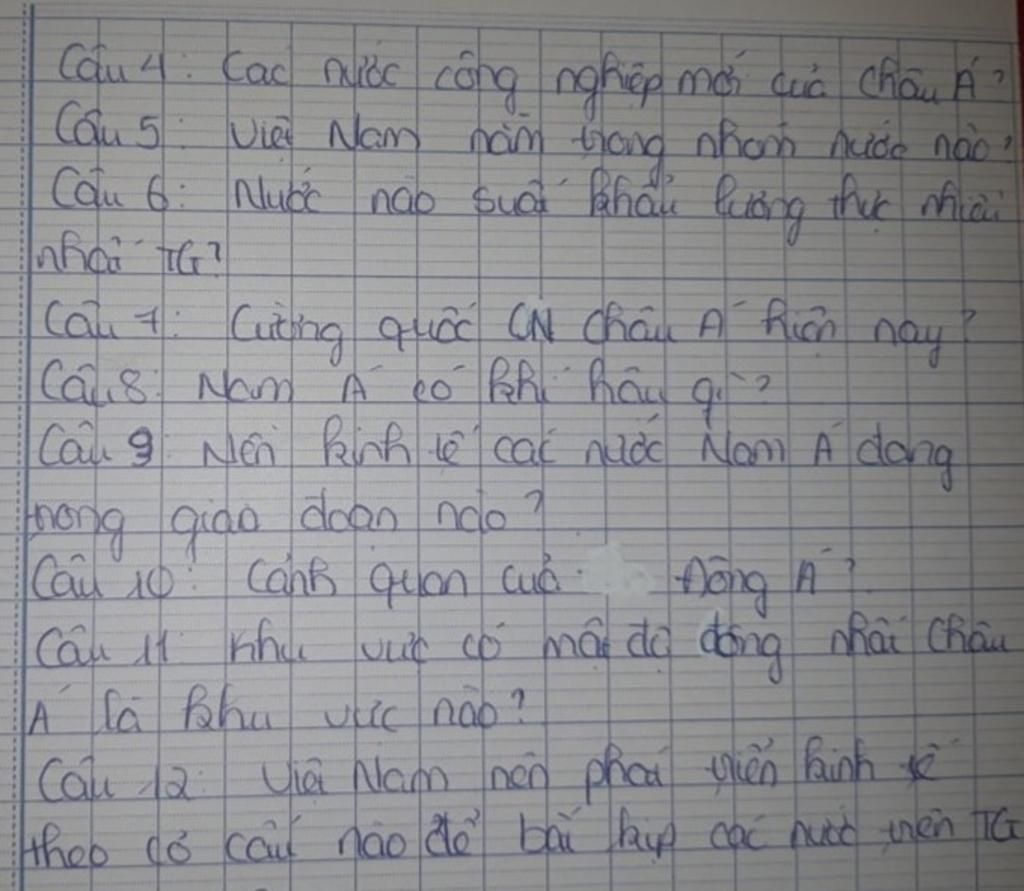 Câu 4: Các nước công nghiệp mới của Châu Á?
Câu 5: Việt Nam nằm trong nhóm nước nào?
Câu 6: Nước nào suất khẩu lương thực nhiều
nhất TG?
Câu 7: Cường quốc CN Châu Á hiện nay?
Câu 8: Nam Á có khí hậu gì?
Câu 9: Nền kinh tế các nước Nam Á đang
trong giao đoạn nào?
Câu 10: Cảnh quan của Đông Á?
Câu 11: Khu vực có mật độ đông nhất Châu
Á là khu vực nào?
Câu 12: Việt Nam nên phát triển kinh tế
theo cơ cấu nào để bắt kịp các nước trên TG